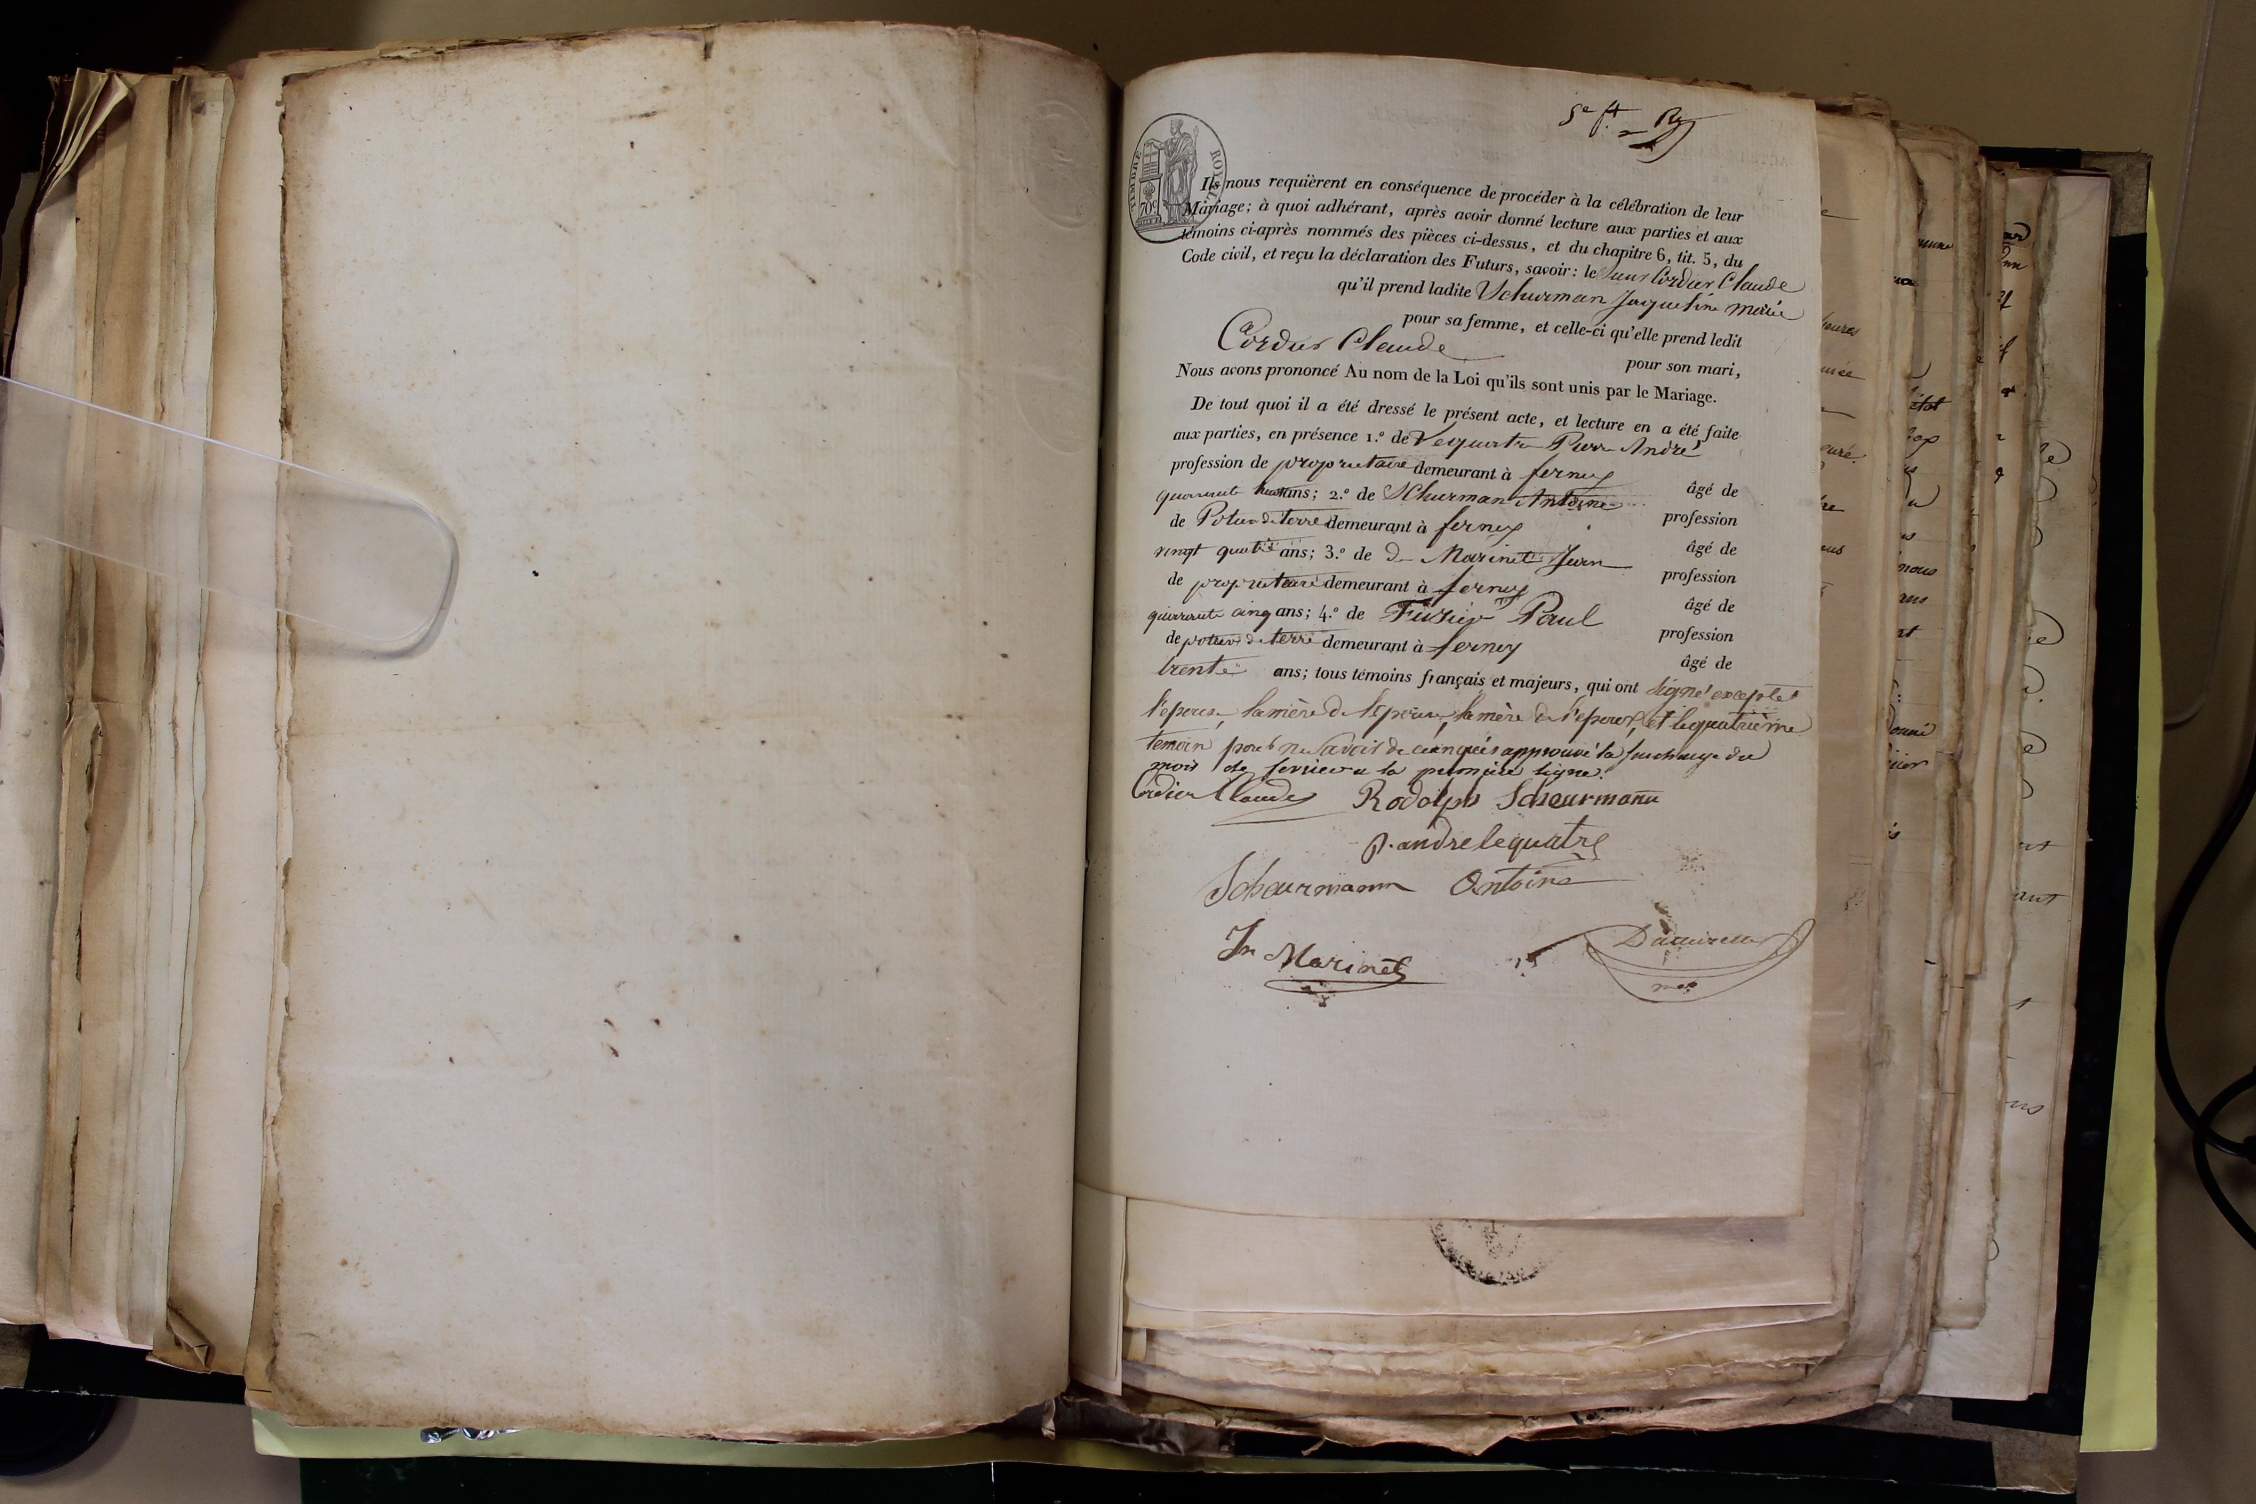 5e ft
TIMBRE ROYAL
70c
Ils nous requièrent en conséquence de procéder à la célébration de leur
Mariage; à quoi adhérant, après avoir donné lecture aux parties et aux
témoins ci-après nommés des pièces ci-dessus, et du chapitre 6, tit. 5, du
Code civil, et reçu la déclaration des Futurs, savoir: le Sieur Cordier Claude
qu'il prend ladite Schurman Jaqueline marie
pour sa femme, et celle-ci qu'elle prend ledit
Cordier Claude
pour son mari,
Nous avons prononcé Au nom de la Loi qu'ils sont unis par le Mariage.
De tout quoi il a été dressé le présent acte, et lecture en a été faite
aux parties, en présence 1.º de Lequatre Pierre André
profession de proprietaire demeurant à ferney
âgé de
quarante huit ans; 2.º de Schurman Antoine
profession
de Potier de terre demeurant à ferney
âgé de
vingt quatre ans; 3.º de Marinet Jean
profession
de proprietaire demeurant à ferney
âgé de
quarante cinq ans; 4.º de Fusier Paul
profession
de potier de terre demeurant à ferney
âgé de
trente ans; tous témoins français et majeurs, qui ont signé excepté
l'epouse, la mère de l'epouse, la mère de l'epoux, et le quatrième
temoin pour ne savoir de ce enquis approuvé la surcharge du
mois de fevrier a la première ligne.
Cordier Claude Rodolph Scheurmann
p. andre lequatre
Scheurmann Antoine
Jn Marinet